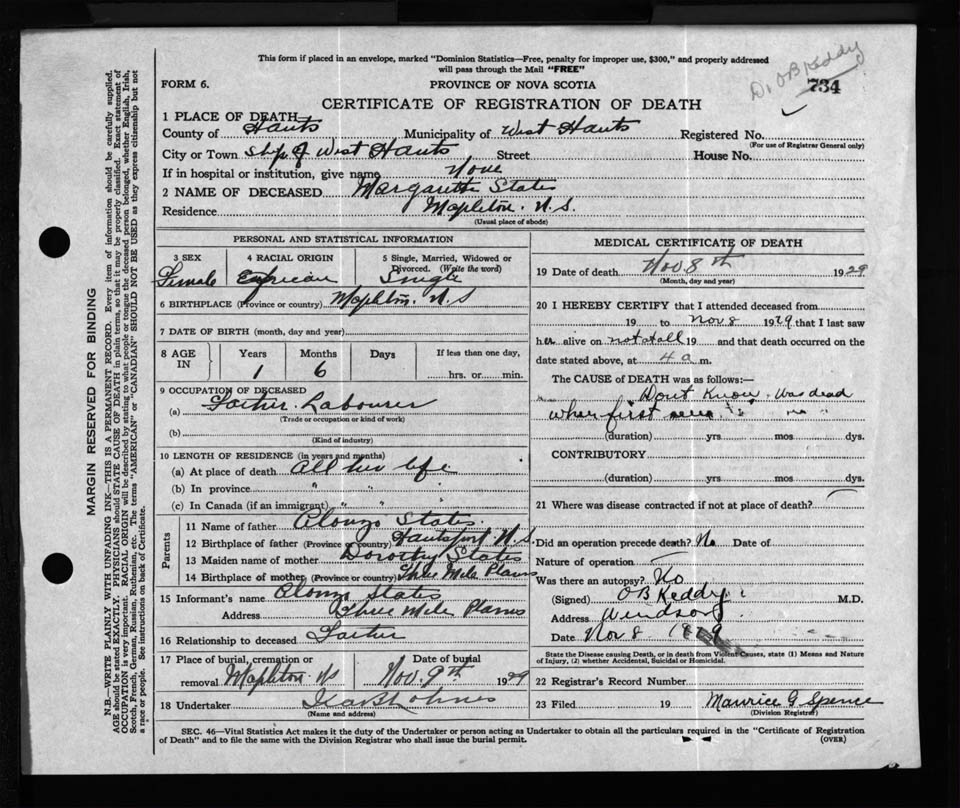 This form if placed in an envelope, marked "Dominion Statistics—Free, penalty for improper use, $300," and properly addressed
will pass through the Mail "FREE"
Dr. O B Keddy
FORM 6.
PROVINCE OF NOVA SCOTIA
734
CERTIFICATE OF REGISTRATION OF DEATH
1 PLACE OF DEATH
County of Hants Municipality of West Hants Registered No.
(For use of Registrar General only)
City or Town Shp of West Hants Street House No.
If in hospital or institution, give name None
2 NAME OF DECEASED Margaretta States
Residence Mapleton. N.S.
(Usual place of abode)
PERSONAL AND STATISTICAL INFORMATION
3 SEX 4 RACIAL ORIGIN 5 Single, Married, Widowed or
Divorced. (Write the word)
Female Single
6 BIRTHPLACE (Province or country) Mapleton. N.S
7 DATE OF BIRTH (month, day and year)
8 AGE IN Years Months Days If less than one day,
1 6 hrs. or min.
9 OCCUPATION OF DECEASED
(a) Father. Labourer
(Trade or occupation or kind of work)
(b)
(Kind of industry)
10 LENGTH OF RESIDENCE (in years and months)
(a) At place of death All her life
(b) In province "
(c) In Canada (if an immigrant) " "
Parents
11 Name of father Alonzo States.
12 Birthplace of father (Province or country) Hantsport N.S.
13 Maiden name of mother Dorothy States
14 Birthplace of mother (Province or country) Three Mile Plains
15 Informant's name Alonzo States
Address Three Mile Plains
16 Relationship to deceased Father
17 Place of burial, cremation or removal Mapleton. NS Date of burial Nov. 9th 1929
18 Undertaker Holmes
(Name and address)
MEDICAL CERTIFICATE OF DEATH
19 Date of death Nov 8th 1929
(Month, day and year)
20 I HEREBY CERTIFY that I attended deceased from
19 to Nov 8 1929 that I last saw
her alive on not at all 19 and that death occurred on the
date stated above, at 4 a m.
The CAUSE of DEATH was as follows:—
Dont Know. Was dead
when first seen
(duration) yrs mos dys.
CONTRIBUTORY
(duration) yrs mos dys.
21 Where was disease contracted if not at place of death?
Did an operation precede death? No Date of
Nature of operation
Was there an autopsy? No
(Signed) O B Keddy M.D.
Address Windsor
Date Nov 8 1929
State the Disease causing Death, or in death from Violent Causes, state (1) Means and Nature
of Injury, (2) whether Accidental, Suicidal or Homicidal.
22 Registrar's Record Number
23 Filed 19 Maurice G. Spence
(Division Registrar)
SEC. 46—Vital Statistics Act makes it the duty of the Undertaker or person acting as Undertaker to obtain all the particulars required in the "Certificate of Registration
of Death" and to file the same with the Division Registrar who shall issue the burial permit.
(OVER)
MARGIN RESERVED FOR BINDING
N.B.—WRITE PLAINLY WITH UNFADING INK—THIS IS A PERMANENT RECORD. Every item of information should be carefully supplied.
AGE should be stated EXACTLY. PHYSICIANS should STATE CAUSE OF DEATH in plain terms, so that it may be properly classified. Exact statement of
OCCUPATION is very important. RACIAL ORIGIN will be described by stating to what people or tongue the deceased person belonged, whether English, Irish,
Scotch, French, German, Russian, Ruthenian, etc. The terms "AMERICAN" or "CANADIAN" SHOULD NOT BE USED as they express citizenship but not
a race or people. See instructions on back of Certificate.